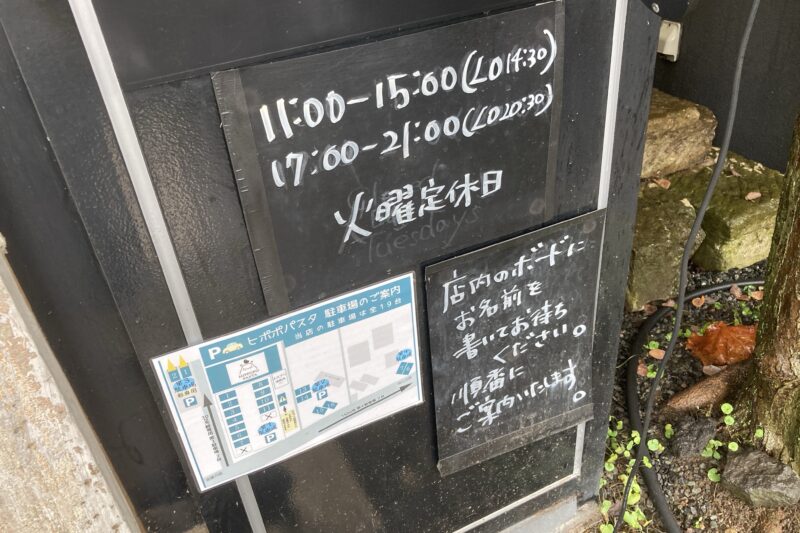 11:00-15:00(LO14:30)
17:00-21:00(LO20:30)
火曜定休日
Tuesdays
店内のボードに
お名前を
書いてお待ち
ください。
順番に
ご案内いたします。
P ヒポポパスタ 駐車場のご案内
当店の駐車場は全19台